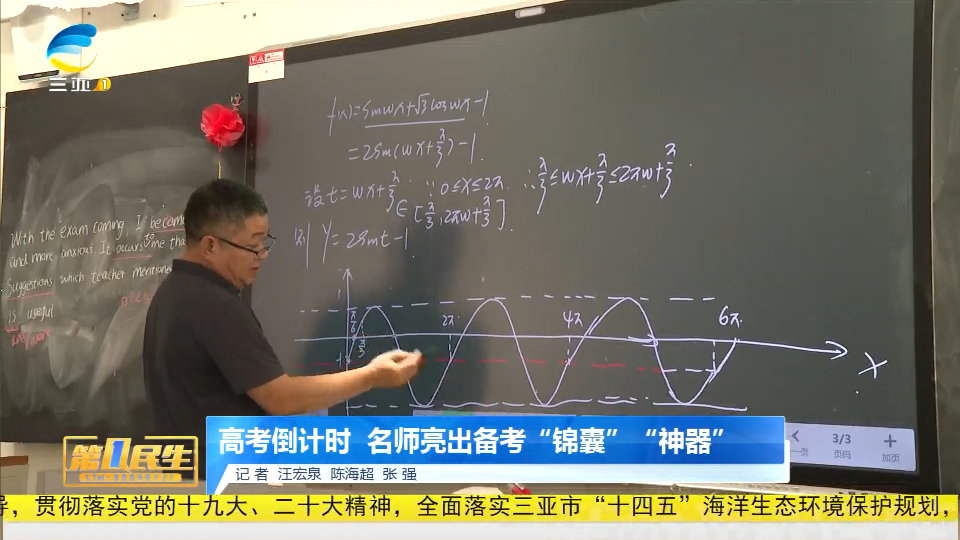 三亚1
f(x)=sinwx+√3coswx-1
=2sin(wx+π/3)-1
设t=wx+π/3 ∵0≤x≤2π. ∴π/3≤wx+π/3≤2πw+π/3
∈[π/3,2πw+π/3].
则 y=2sint-1
With the exam coming, I become
and more anxious. It occurs to me tha
suggestions which teacher mentione
is useful
1
π/6
π/3
-1
2π
4π
6π
X
3/3
页码
加页
高考倒计时 名师亮出备考“锦囊”“神器”
第1民生
记者 汪宏泉 陈海超 张强
，贯彻落实党的十九大、二十大精神，全面落实三亚市“十四五”海洋生态环境保护规划，